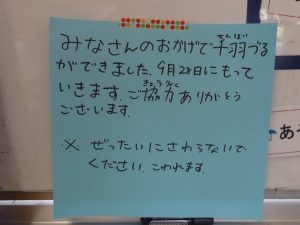 みなさんのおかげで千羽づる
ができました。9月28日にもって
いきます。ご協力ありがとう
ございます。
※ ぜったいにさわらないで
ください。こわれます。